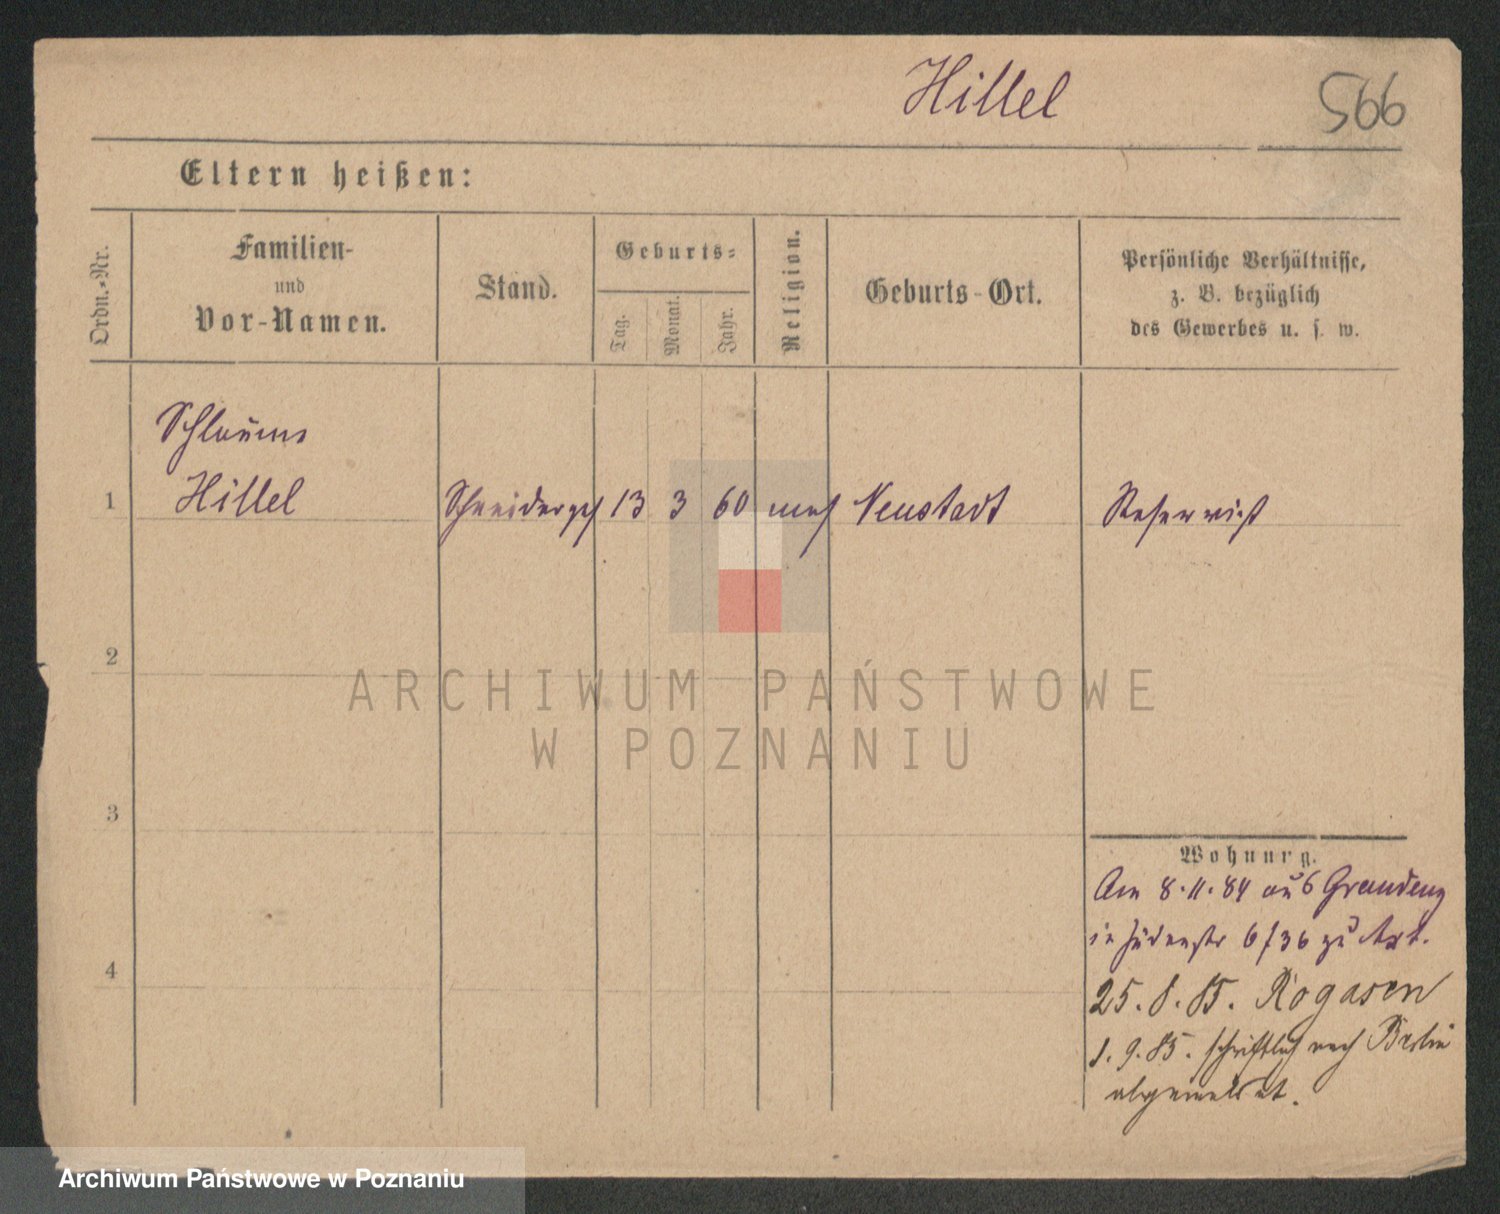 Hillel
566
Eltern heißen:
Ordn.-Nr.
Familien-
und
Vor-Namen.
Stand.
Geburts-
Tag.
Monat.
Jahr.
Religion.
Geburts-Ort.
Persönliche Verhältnisse,
z. B. bezüglich
des Gewerbes u. s. w.
Schlaume
1 Hillel Schneiderges 13 3 60 mos Neustadt Reservist
2
3
4
Wohnung.
Am 8.11.84 aus Graudenz
in Judenstr 6/36 zu
25.8.85. Rogasen
1.9.85. schriftlich nach Berlin
abgemeldet.
ARCHIWUM PAŃSTWOWE
W POZNANIU
Archiwum Państwowe w Poznaniu